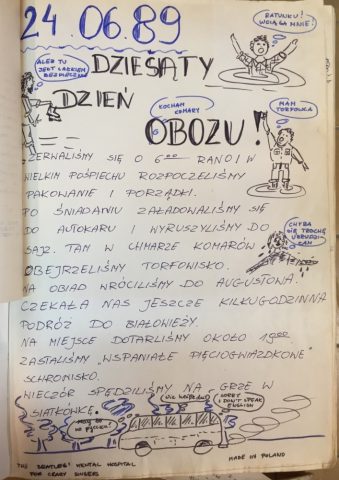 24.06.89
RATUNKU!
WCIĄGA MNIE!
ALEŻ TU JEST CAŁKIEM BEZPIECZNIE
DZIESIĄTY
DZIEŃ
KOCHAM KOMARY
MAM TORFOWCA
OBOZU!
ZERWALIŚMY SIĘ O 6⁰⁰ RANO I W
WIELKIM POŚPIECHU ROZPOCZĘLIŚMY
PAKOWANIE I PORZĄDKI.
PO ŚNIADANIU ZAŁADOWALIŚMY SIĘ
DO AUTOKARU I WYRUSZYLIŚMY DO
SAJZ. TAM W CHMARZE KOMARÓW
OBEJRZELIŚMY TORFOWISKO.
CHYBA SIĘ TROCHĘ UBRUDZIŁAM
NA OBIAD WRÓCILIŚMY DO AUGUSTOWA.
CZEKAŁA NAS JESZCZE KILKUGODZINNA
PODRÓŻ DO BIAŁOWIEŻY.
NA MIEJSCE DOTARLIŚMY OKOŁO 19⁰⁰
ZASTALIŚMY „WSPANIAŁE PIĘCIOGWIAZDKOWE"
SCHRONISKO.
WIECZÓR SPĘDZILIŚMY NA GRZE W
SIATKÓWKĘ.
SORRY I DON'T SPEAK ENGLISH
MADE IN POLAND
MENTAL HOSPITAL
FOR CRAZY SINGERS